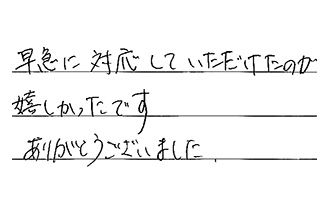 早急に対応していただけたのが
嬉しかったです
ありがとうございました.